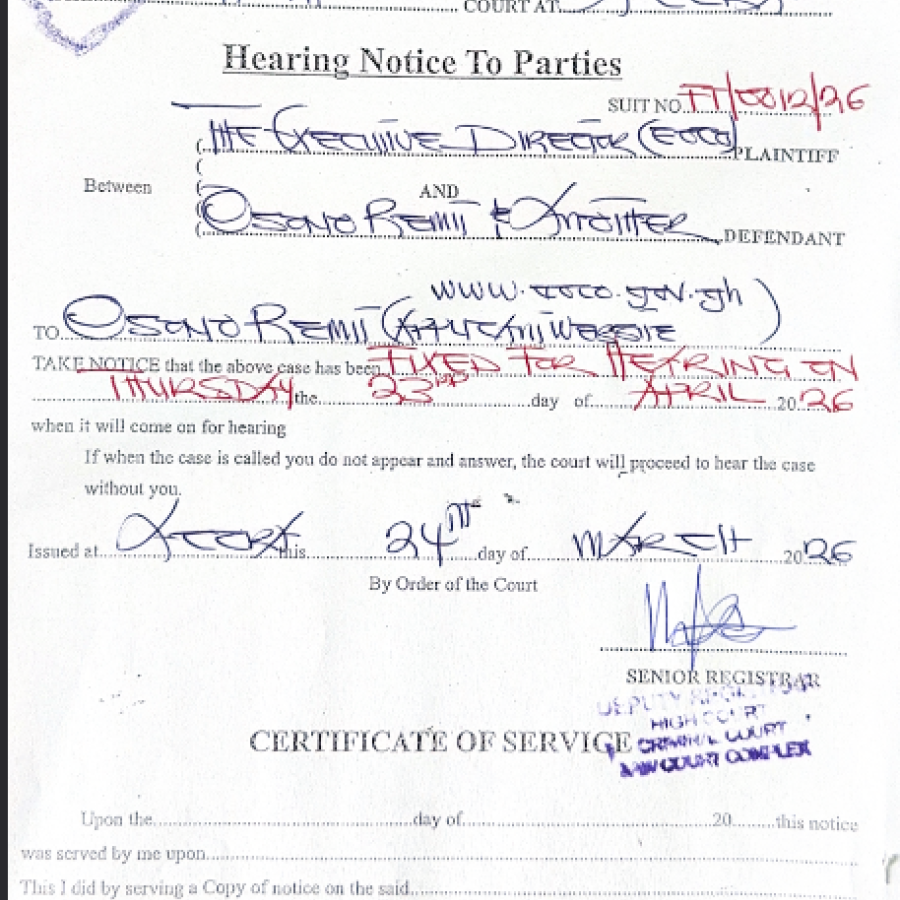 COURT AT
Hearing Notice To Parties
SUIT NO. FT/0012/26
THE EXECUTIVE DIRECTOR (EOCO) PLAINTIFF
Between
AND
OSONO REMII & ANOTHER DEFENDANT
www.eoco.gov.gh
TO OSONO REMII (APPLICANT WEBSITE)
TAKE NOTICE that the above case has been FIXED FOR HEARING ON
THURSDAY the 23RD day of APRIL 2026
when it will come on for hearing
If when the case is called you do not appear and answer, the court will proceed to hear the case
without you.
Issued at ACCRA this 24TH day of MARCH 2026
By Order of the Court
SENIOR REGISTRAR
DEPUTY REGISTRAR
HIGH COURT
CRIMINAL COURT
LAW COURT COMPLEX
CERTIFICATE OF SERVICE
Upon the day of 20 this notice
was served by me upon
This I did by serving a Copy of notice on the said